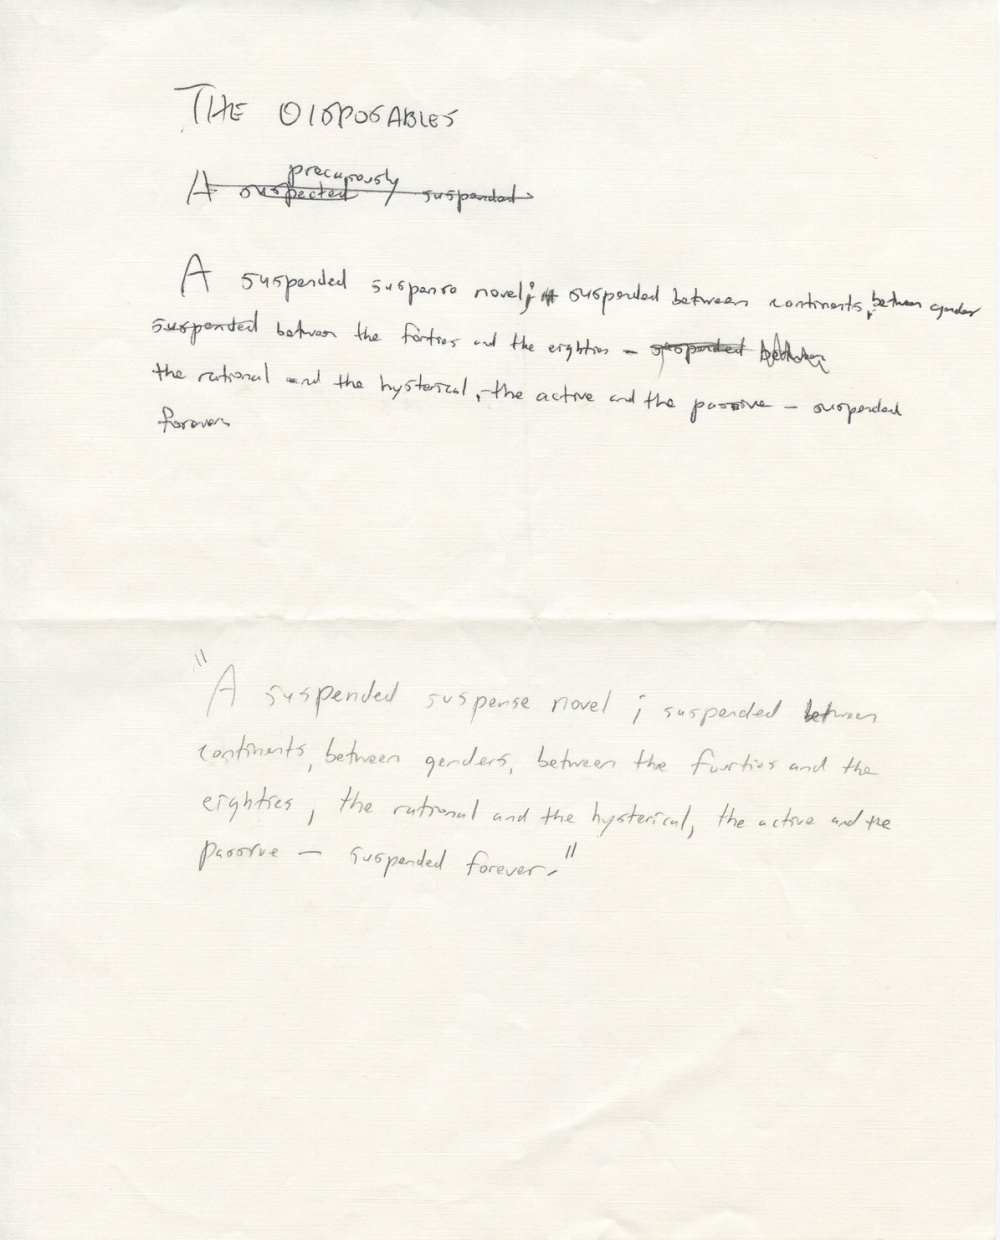 THE DISPOSABLES
precariously
A suspected suspended
A suspended suspense novel; suspended between continents, between gender
suspended between the forties and the eighties – suspended between
the rational and the hysterical, the active and the passive – suspended
forever
"A suspended suspense novel ; suspended between
continents, between genders, between the fourties and the
eighties, the rational and the hysterical, the active and the
passive — suspended forever."